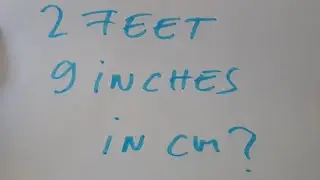 2 FEET
9 iNCHES
iN CM?